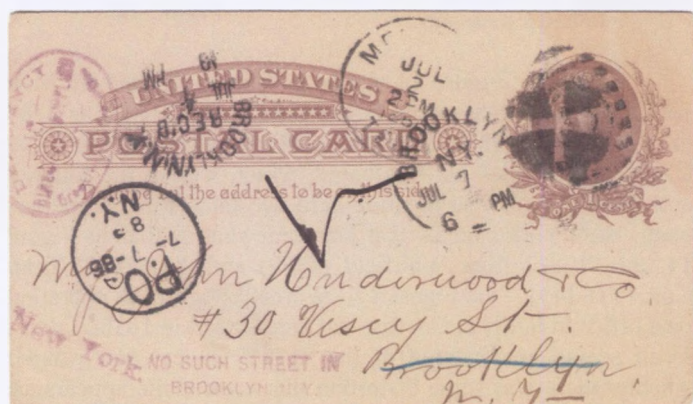 UNITED STATES
POSTAL CARD
Nothing but the address to be on this side
JUL
2
BROOKLYN
N.Y.
JUL 7
6 PM
BROOKLYN, N.Y.
REC'D
JUL
N.Y.
7-7-86
8
John Underwood & Co.
#30 Vesey St.
Brooklyn,
N.Y.
New York
NO SUCH STREET IN
BROOKLYN N.Y.